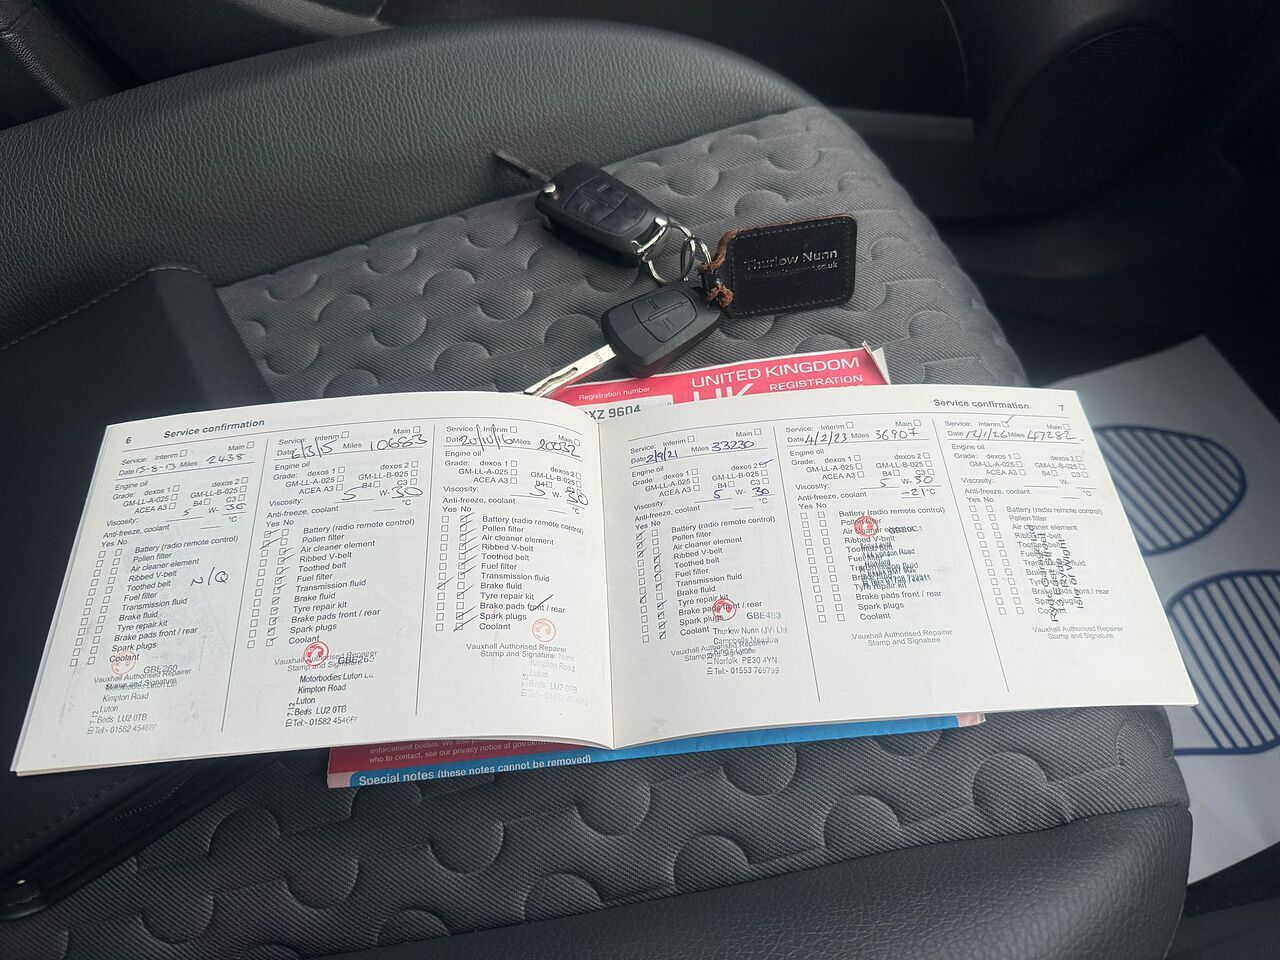 Thurlow Nunn
UNITED KINGDOM
Registration number
REGISTRATION
XZ 9604
6 Service confirmation
Service: Interim Main
Date 13-8-13 Miles 2438
Engine oil
Grade: dexos 1 dexos 2
GM-LL-A-025 GM-LL-B-025
ACEA A3 B4 C3
Viscosity: 5 W- 30
Anti-freeze, coolant °C
Yes No
Battery (radio remote control)
Pollen filter
Air cleaner element
Ribbed V-belt
Toothed belt
Fuel filter
Transmission fluid
Brake fluid
Tyre repair kit
Brake pads front / rear
Spark plugs
Coolant
N/Q
GBE260
Vauxhall Authorised Repairer
Stamp and Signature
Motorbodies Luton
Kimpton Road
Luton
Beds LU2 0TB
Service: Interim Main
Date 6/3/15 Miles
Engine oil
Grade: dexos 1 dexos 2
GM-LL-A-025 GM-LL-B-025
ACEA A3 B4 C3
Viscosity: 5 W- 30
Anti-freeze, coolant °C
Yes No
Battery (radio remote control)
Pollen filter
Air cleaner element
Ribbed V-belt
Toothed belt
Fuel filter
Transmission fluid
Brake fluid
Tyre repair kit
Brake pads front / rear
Spark plugs
Coolant
Vauxhall Authorised Repairer
Stamp and Signature
Motorbodies Luton
Kimpton Road
Luton
Beds LU2 0TB
Service: Interim Main
Date 20/10/16 Miles 20032
Engine oil
Grade: dexos 1 dexos 2
GM-LL-A-025 GM-LL-B-025
ACEA A3 B4 C3
Viscosity: 5 W- 30
Anti-freeze, coolant °C
Yes No
Battery (radio remote control)
Pollen filter
Air cleaner element
Ribbed V-belt
Toothed belt
Fuel filter
Transmission fluid
Brake fluid
Tyre repair kit
Brake pads front / rear
Spark plugs
Coolant
Vauxhall Authorised Repairer
Stamp and Signature
Kimpton Road
Luton
Beds LU2 0TB
Service confirmation 7
Service: Interim Main
Date 2/9/21 Miles 33230
Engine oil
Grade: dexos 1 dexos 2
GM-LL-A-025 GM-LL-B-025
ACEA A3 B4 C3
Viscosity: 5 W- 30
Anti-freeze, coolant °C
Yes No
Battery (radio remote control)
Pollen filter
Air cleaner element
Ribbed V-belt
Toothed belt
Fuel filter
Transmission fluid
Brake fluid
Tyre repair kit
Brake pads front / rear
Spark plugs
Coolant
GBE493
Thurlow Nunn (JV) Ltd
Campbells Meadow
Vauxhall Authorised Repairer
Stamp and Signature
Norfolk PE30 4YN
Tel:- 01553 769799
Service: Interim Main
Date 4/2/23 Miles 36907
Engine oil
Grade: dexos 1 dexos 2
GM-LL-A-025 GM-LL-B-025
ACEA A3 B4 C3
Viscosity: 5 W- 30
Anti-freeze, coolant -21 °C
Yes No
Battery (radio remote control)
Pollen filter
Air cleaner element
Ribbed V-belt
Toothed belt
Fuel filter
London Road
Brake fluid
Tyre repair kit
Brake pads front / rear
Spark plugs
Coolant
Vauxhall Authorised Repairer
Stamp and Signature
Service: Interim Main
Date 12/1/26 Miles 47282
Engine oil
Grade: dexos 1 dexos 2
GM-LL-A-025 GM-LL-B-025
ACEA A3 B4 C3
Viscosity: W-
Anti-freeze, coolant °C
Yes No
Battery (radio remote control)
Pollen filter
Air cleaner element
Isle of Wight
Vauxhall Authorised Repairer
Stamp and Signature
enforcement bodies. We also
who to contact, see our privacy notice at gov.uk
Special notes (these notes cannot be removed)